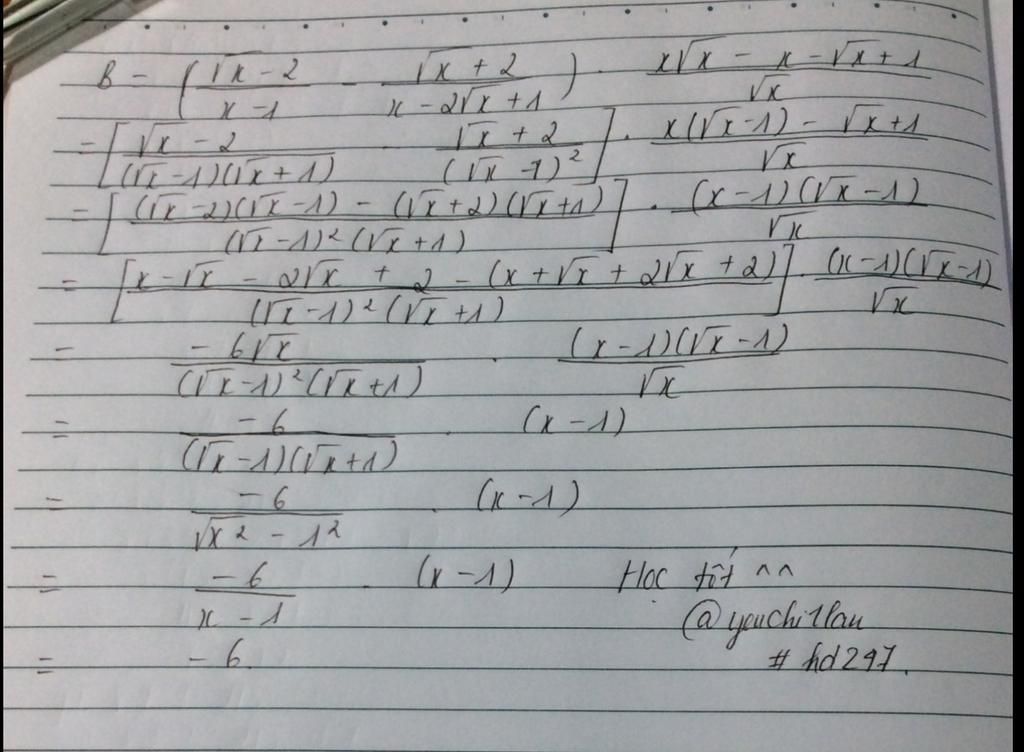 B = (√x - 2 / x - 1 - √x + 2 / x - 2√x + 1) . x√x - x - √x + 1 / √x
= [√x - 2 / (√x - 1)(√x + 1) - √x + 2 / (√x - 1)²] . x(√x - 1) - √x + 1 / √x
= [(√x - 2)(√x - 1) - (√x + 2)(√x + 1) / (√x - 1)²(√x + 1)] . (x - 1)(√x - 1) / √x
= [x - √x - 2√x + 2 - (x + √x + 2√x + 2) / (√x - 1)²(√x + 1)] . (x - 1)(√x - 1) / √x
= -6√x / (√x - 1)²(√x + 1) . (x - 1)(√x - 1) / √x
= -6 / (√x - 1)(√x + 1) . (x - 1)
= -6 / √x² - 1² . (x - 1)
= -6 / x - 1 . (x - 1)
= -6.
Học tốt ^^
# hd247.